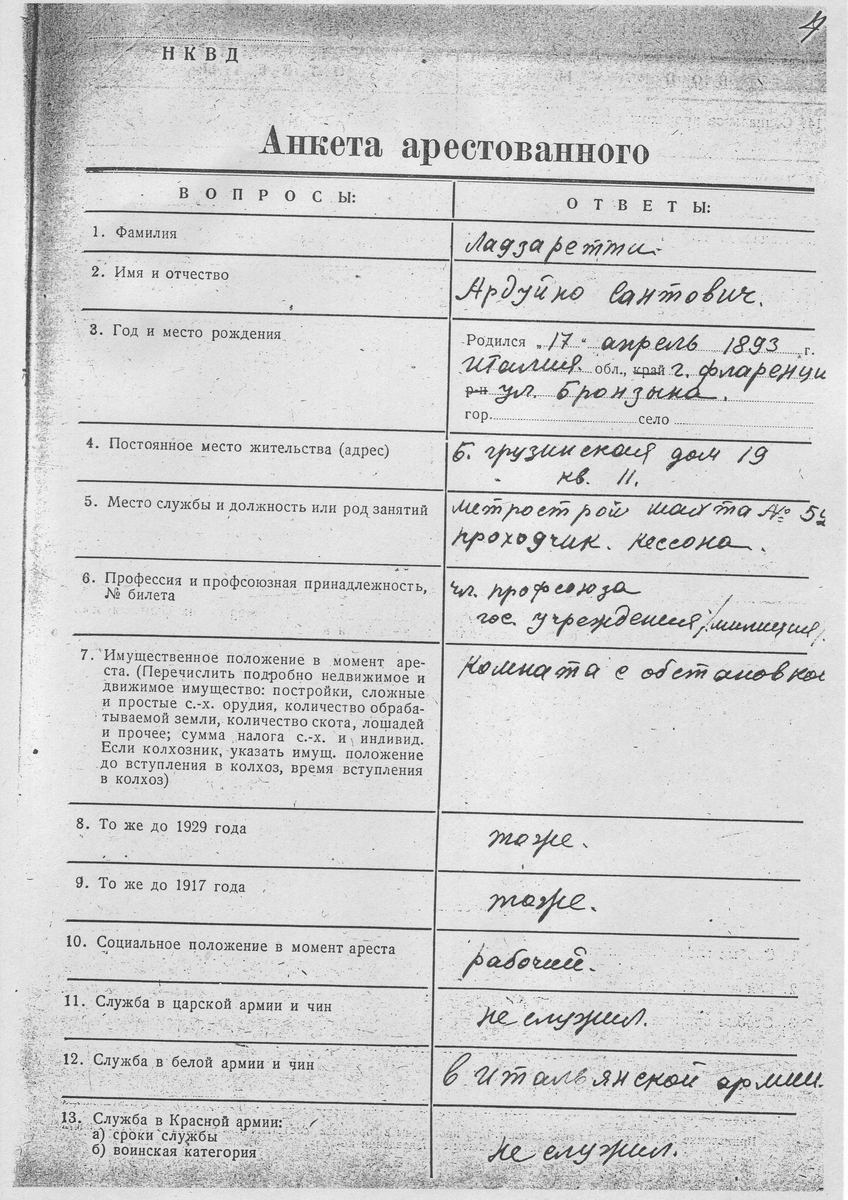 НКВД
Анкета арестованного
ВОПРОСЫ:
ОТВЕТЫ:
1. Фамилия
Ладзаретти.
2. Имя и отчество
Ардуйно Сантович.
3. Год и место рождения
Родился „17" апрель 1893 г.
Италия. обл., край г. фларенци
р-н ул. Бронзына.
гор. село
4. Постоянное место жительства (адрес)
Б. грузинская дом 19
кв. 11.
5. Место службы и должность или род занятий
метрострой шахта №
проходчик. кессона.
6. Профессия и профсоюзная принадлежность,
№ билета
чл. профсоюза
гос. учреждения /милиция/.
7. Имущественное положение в момент аре-
ста. (Перечислить подробно недвижимое и
движимое имущество: постройки, сложные
и простые с.-х. орудия, количество обраба-
тываемой земли, количество скота, лошадей
и прочее; сумма налога с.-х. и индивид.
Если колхозник, указать имущ. положение
до вступления в колхоз, время вступления
в колхоз)
комната с обстановкой
8. То же до 1929 года
тоже.
9. То же до 1917 года
тоже.
10. Социальное положение в момент ареста
рабочий.
11. Служба в царской армии и чин
не служил.
12. Служба в белой армии и чин
в Итальянской армии.
13. Служба в Красной армии:
а) сроки службы
б) воинская категория
не служил.